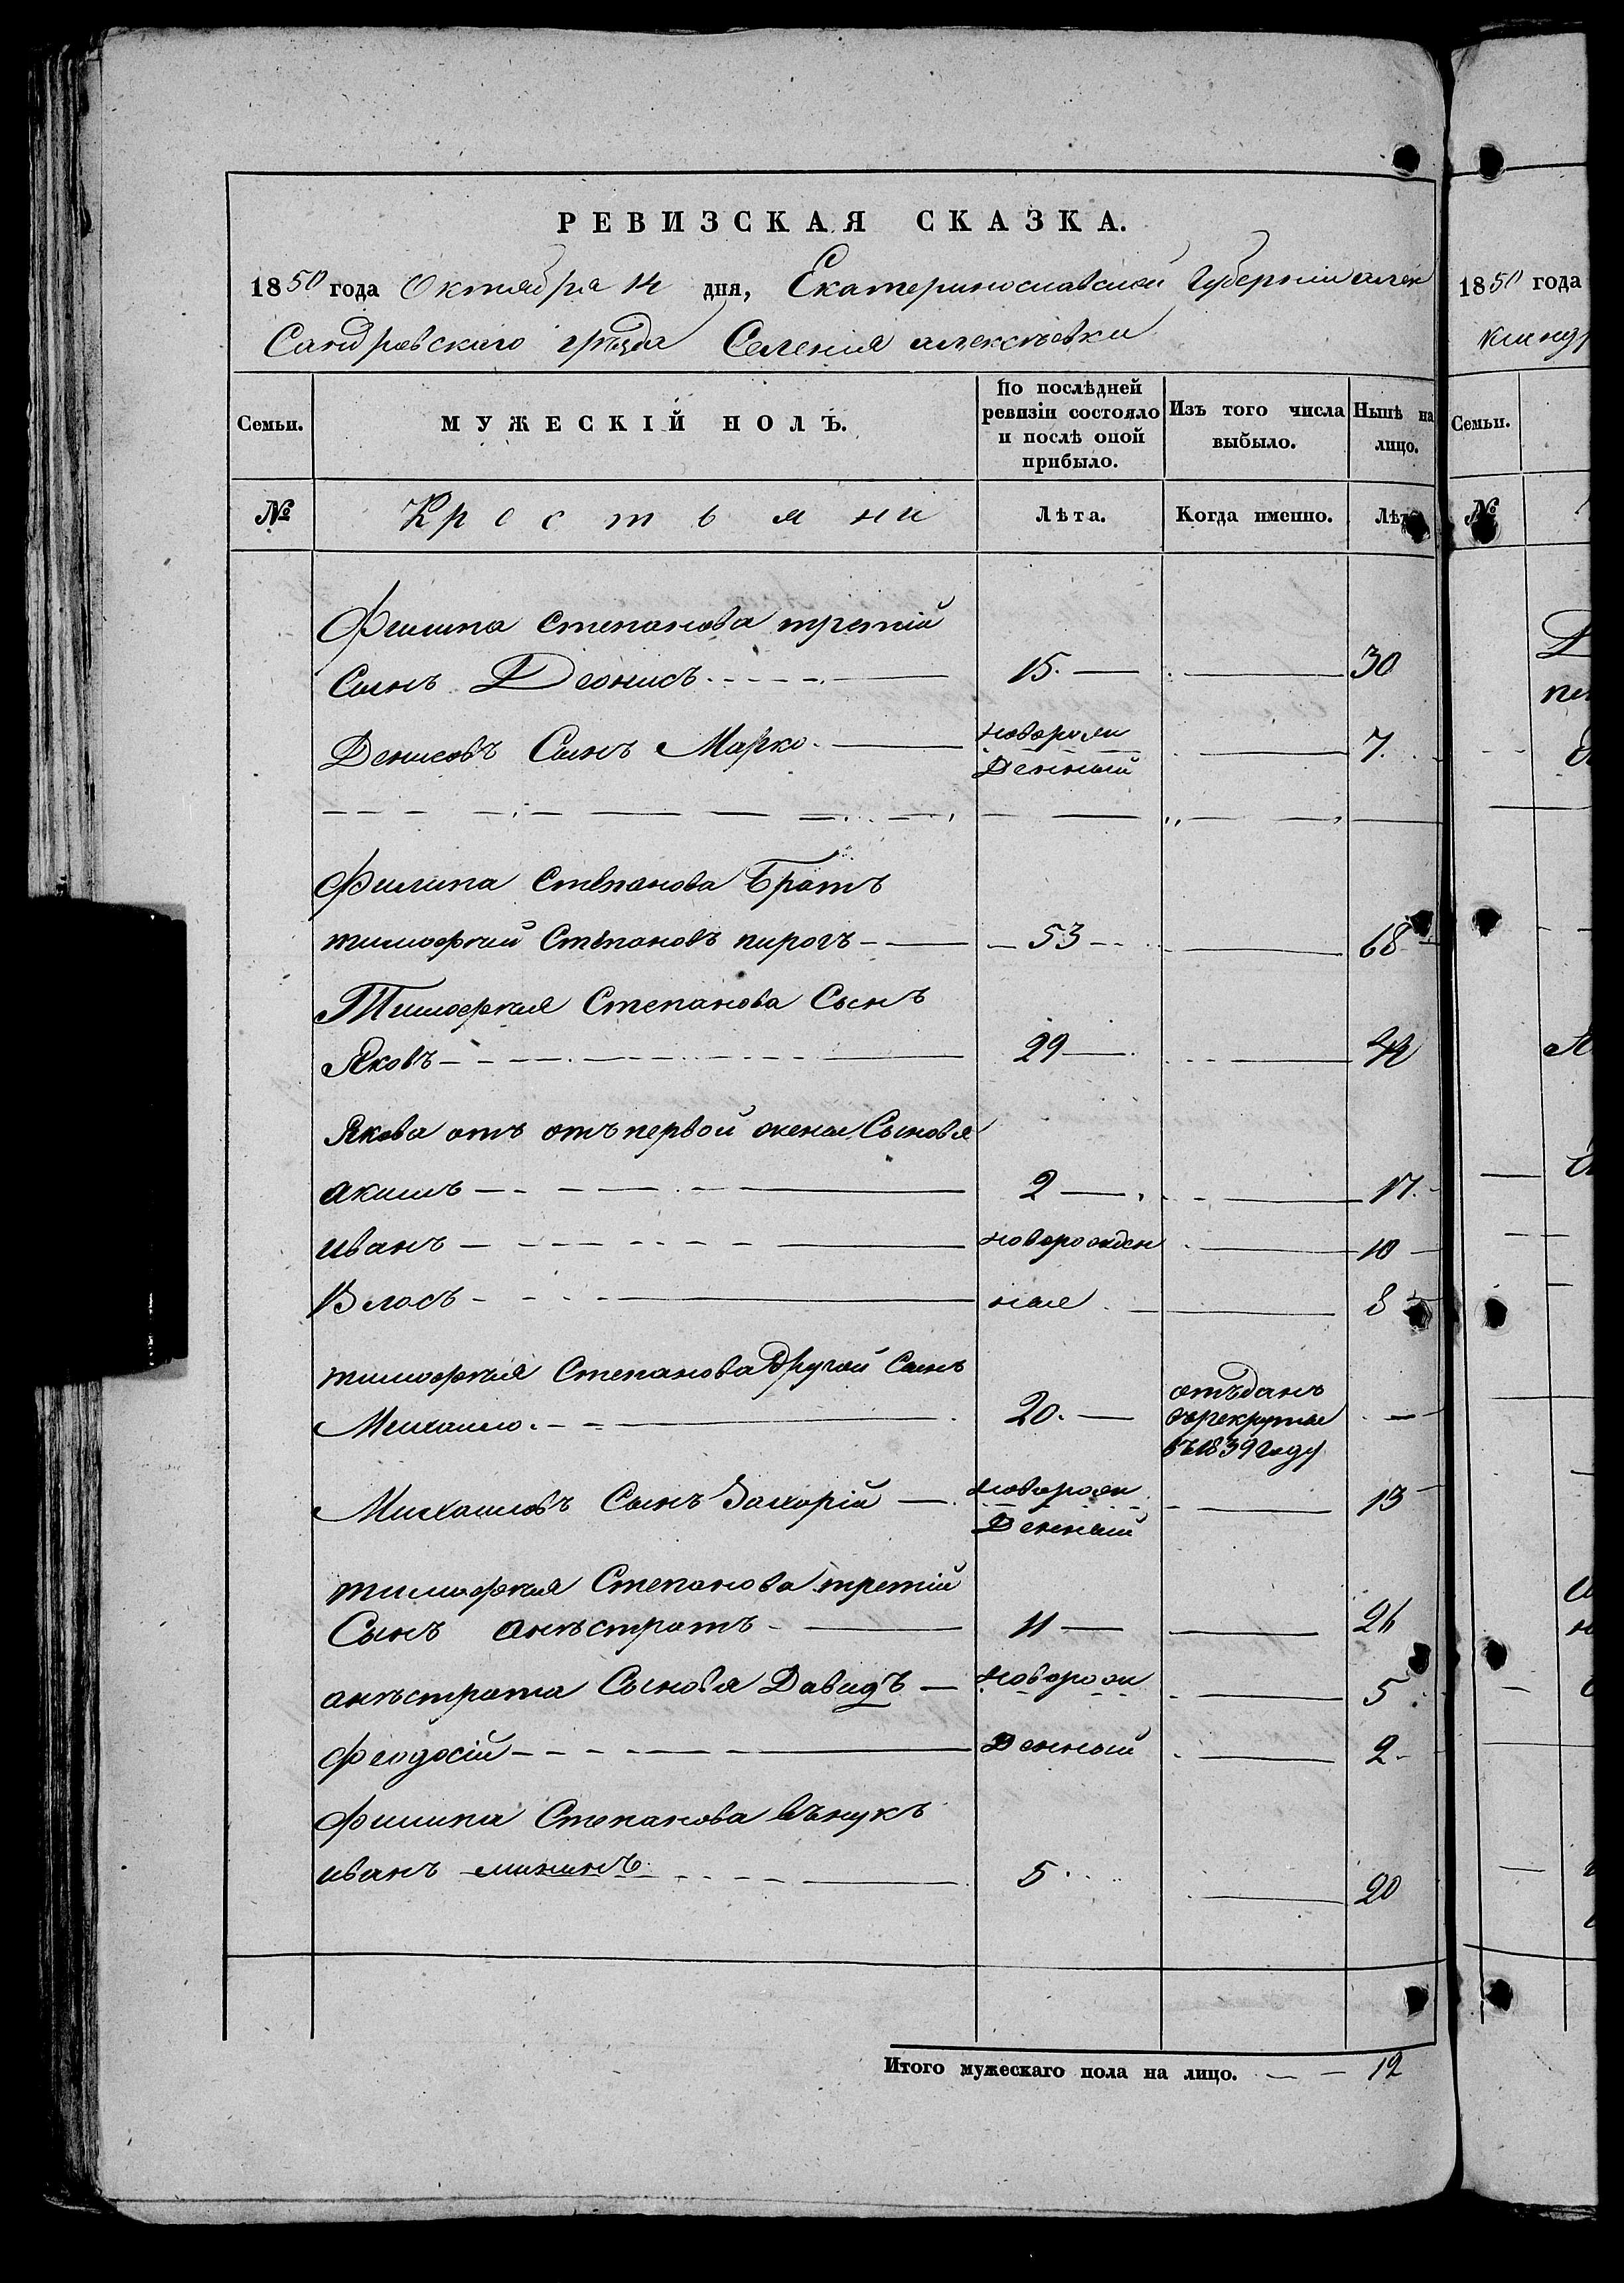 РЕВИЗСКАЯ СКАЗКА.
1850 года Октября 14 дня, Екатеринославской Губернии алек
Сандровскаго уѣзда Селения алексѣевки
Семьи. МУЖЕСКІЙ ПОЛЪ. По послѣдней ревизіи состояло и послѣ оной прибыло. Изъ того числа выбыло. Нынѣ на лицо.
№ Крестьяни Лѣта. Когда именно. Лѣта
Филипа степанова третій
Сынъ Деонисъ 15. 30
Денисовъ Сынъ Марко новорож Денный 7.
Филипа степанова Братъ
тимофѣй Стѣпановъ пирогъ 53 68
Тимофѣя Степанова Сынъ
Яковъ 29 44
Якова отъ отъ первой жены Сыновя
акимъ 2 17.
иванъ новорожден 10
Власъ ные 8
тимофѣя Степанова Другой Сынъ
Михаило. 20. отъданъ
въ 1839 году
Михаиловъ Сынъ Захорій новорож Денный 13
тимофѣя Степанова третій
Сынъ анѣстратъ 11 26
анѣстрата Сыновя Давидъ новорож 5
феодосій Денный 2
филипа Степанова вънукъ
иванъ мининъ 5 20
Итого мужескаго пола на лицо. 12
1850 года
Семьи.
№